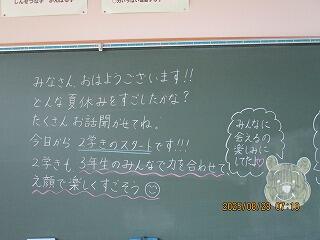 みなさん、おはようございます!!
どんな夏休みをすごしたかな?
たくさんお話聞かせてね。
今日から2学きのスタートです!!!
2学きも、3年生のみんなで力を合わせて、
え顔で楽しくすごそう
みんなに
会えるの
楽しみに
してたよ